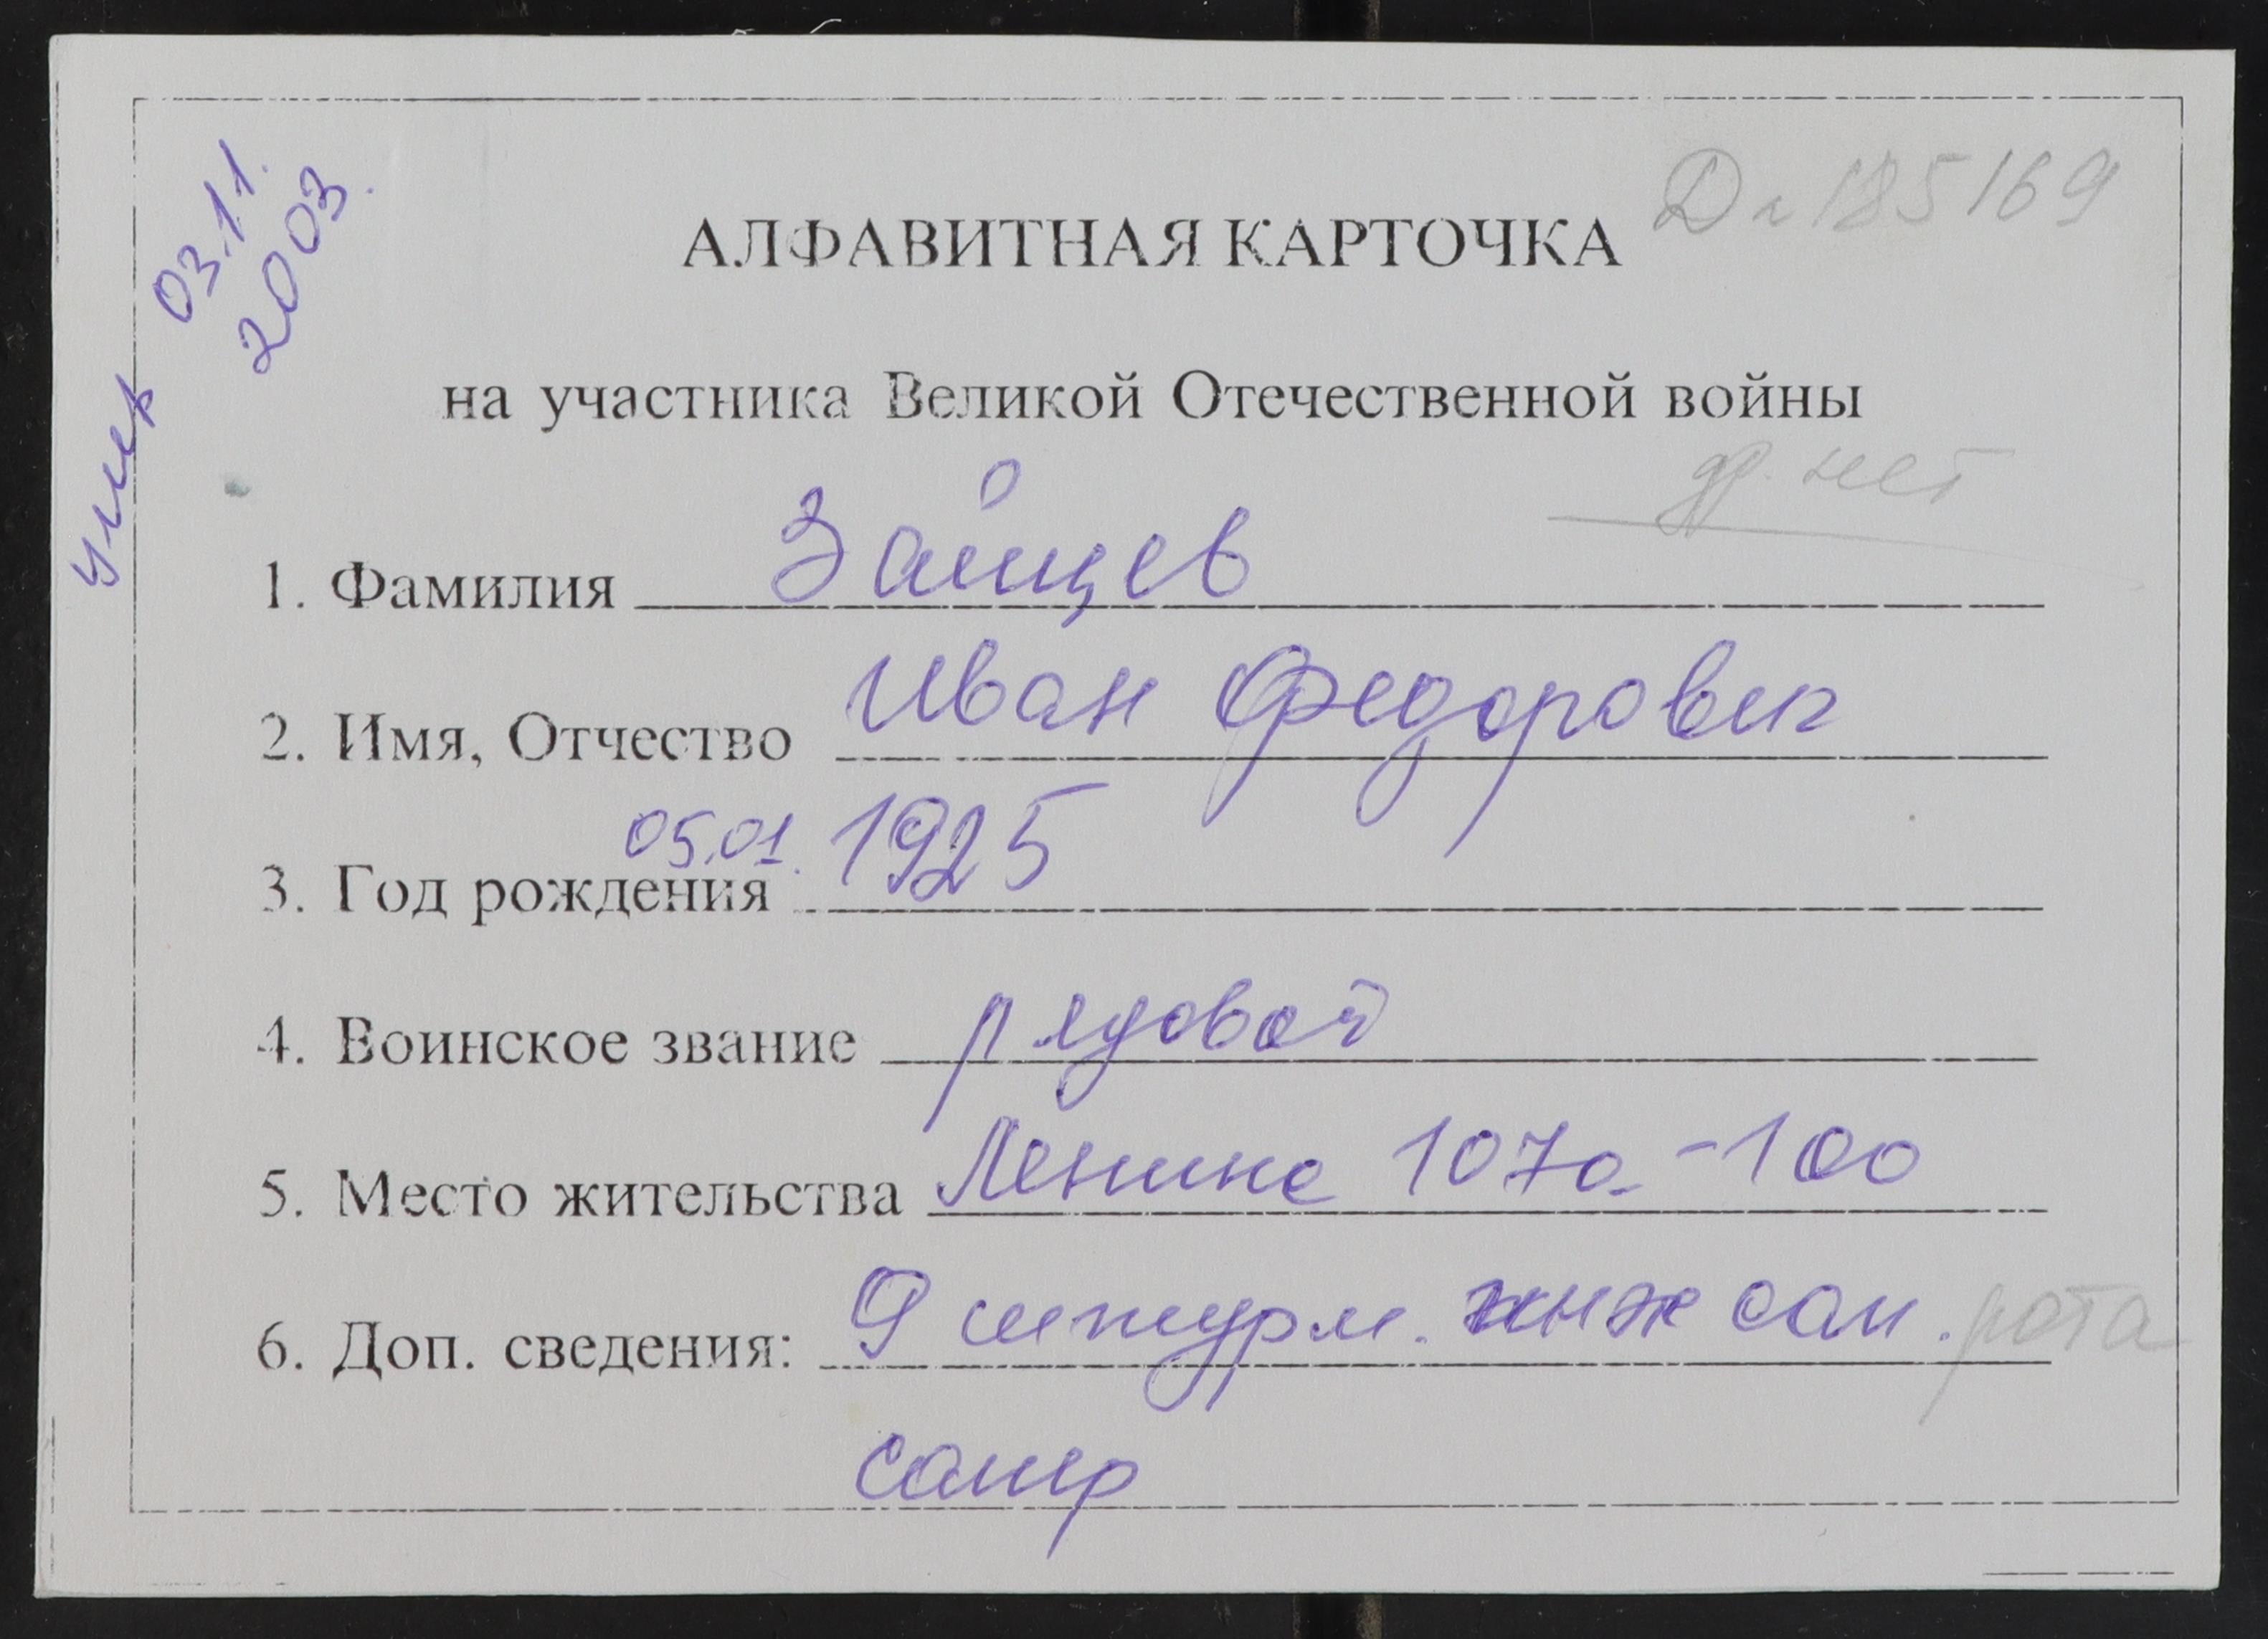 умер 03.11.
2003.
Дл 185169
АЛФАВИТНАЯ КАРТОЧКА
на участника Великой Отечественной войны
др. нет
1. Фамилия Зайцев
2. Имя, Отчество Иван Федорович
3. Год рождения 05.01. 1925
4. Воинское звание рядовой
5. Место жительства Ленина 107а - 100
6. Доп. сведения: 9 штурм. инж сап. рота
сапер